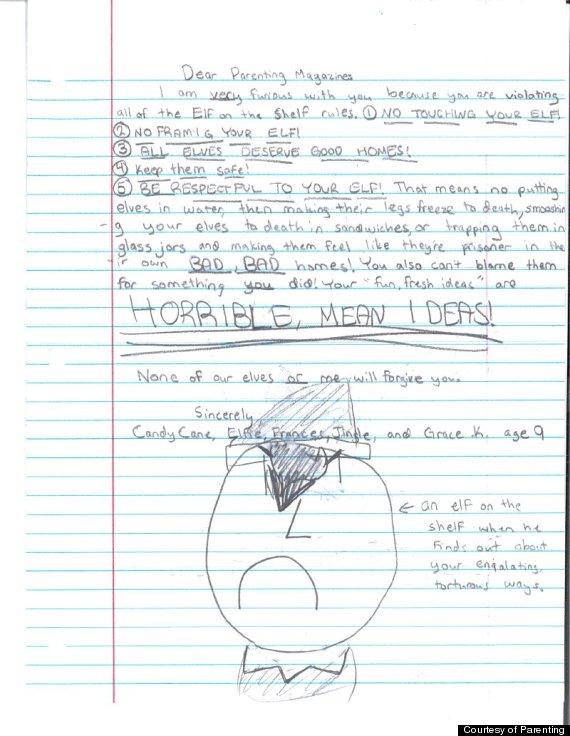 Dear Parenting Magazines
I am very furious with you because you are violating
all of the Elf on the Shelf rules. ① NO TOUCHING YOUR ELF!
② NO FRAMIG YOUR ELF!
③ ALL ELVES DESERVE GOOD HOMES!
④ Keep them safe!
⑤ BE RESPECTFUL TO YOUR ELF! That means no putting
elves in water, then making their legs freeze to death, smooshin
-g your elves to death in sandwiches, or trapping them in
glass jars and making them feel like they're prisoner in the
-ir own BAD, BAD homes! You also can't blame them
for something you did! Your "fun, fresh ideas" are
HORRIBLE, MEAN IDEAS!
None of our elves or me will forgive you.
Sincerely
Candy Cane, Elfie, Frances, Jingle, and Grace K. age 9
← an elf on the
shelf when he
finds out about
your engalating,
torturous ways.
Courtesy of Parenting